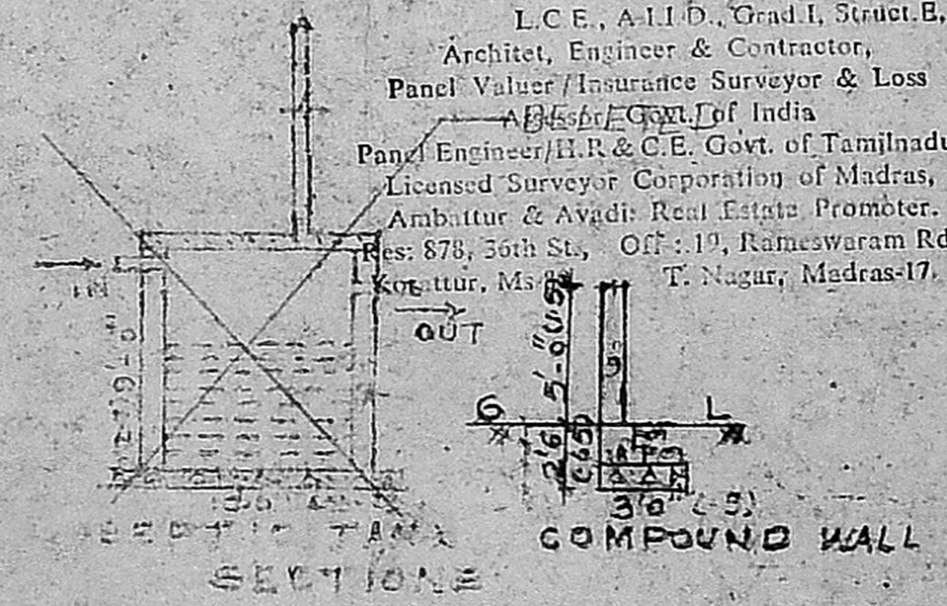 L.C.E., A.I.I.D., Grad.I, Struct.E,
Architet, Engineer & Contractor,
Panel Valuer/Insurance Surveyor & Loss
Govt. of India
Panel Engineer/H.R & C.E. Govt. of Tamilnadu
Licensed Surveyor Corporation of Madras,
Ambattur & Avadi: Real Estate Promoter.
Res: 878, 36th St., Off : 19, Rameswaram Rd
Korattur, Ms T. Nagar, Madras-17.
IN
OUT
5'-0"
9"
G L
2'6
3'0"
SEPTIC TANK
COMPOUND WALL
SECTIONS